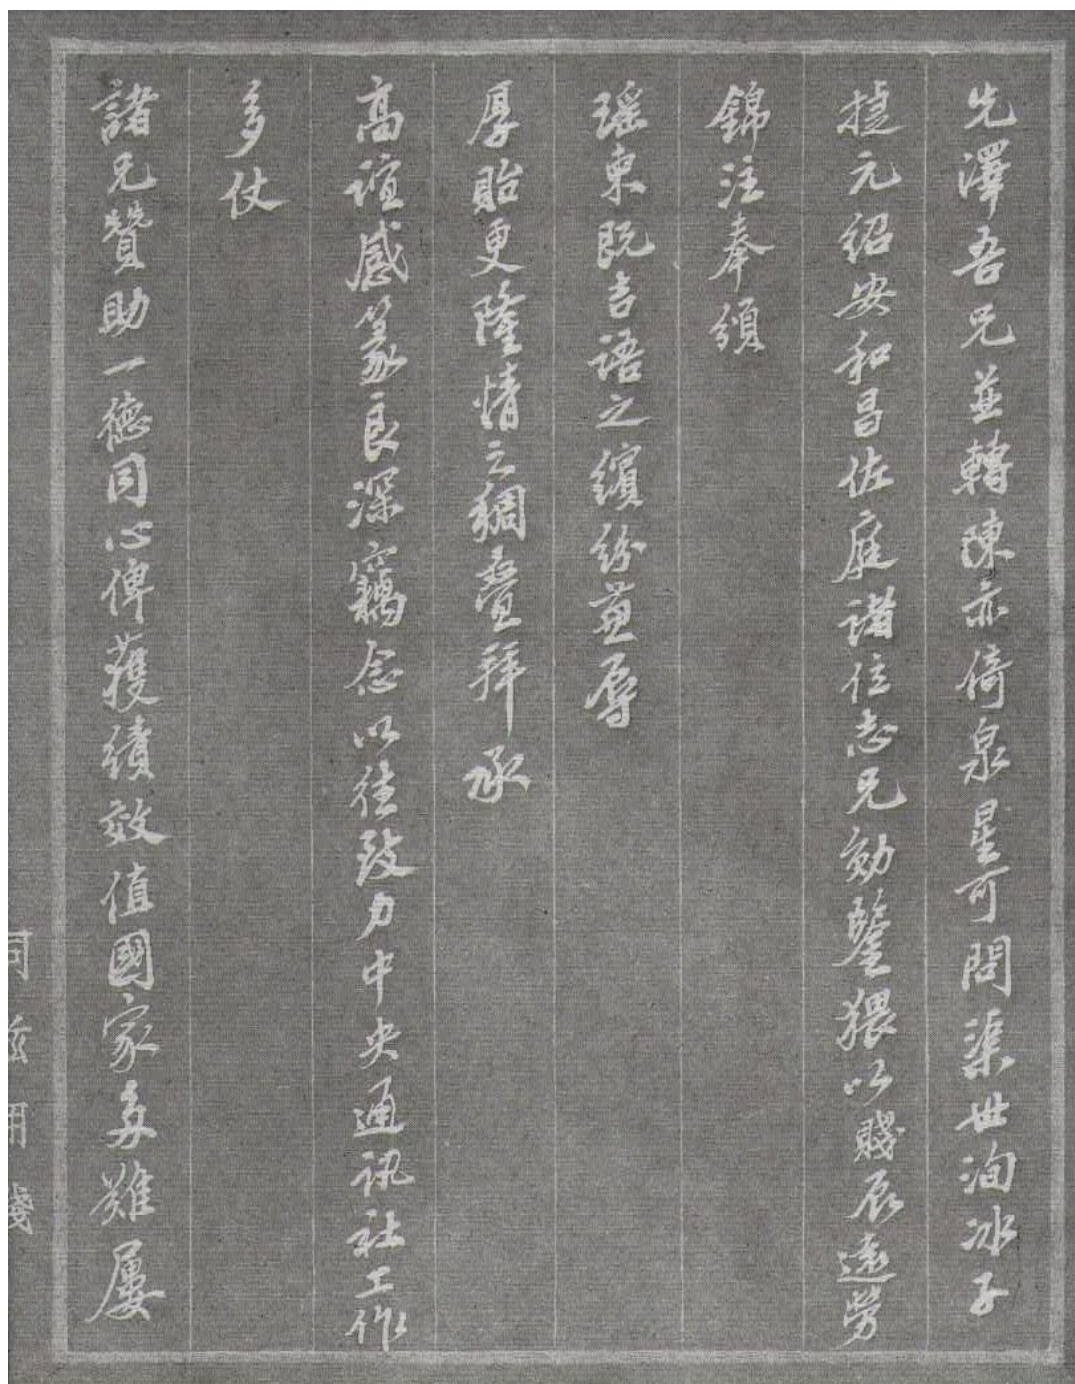 先澤吾兄並轉陳亦倚泉星可問渠世洵冰子
捷元紹安和昌佐庭諸位志兄勛鑒猥以賤辰遠勞
錦注奉頌
瑤柬既言語之繽紛荷辱
厚貽更隆情之稠疊拜承
高誼感篆良深竊念以往致力中央通訊社工作
多仗
諸兄贊助一德同心俾獲績效值國家多難屢
用牋